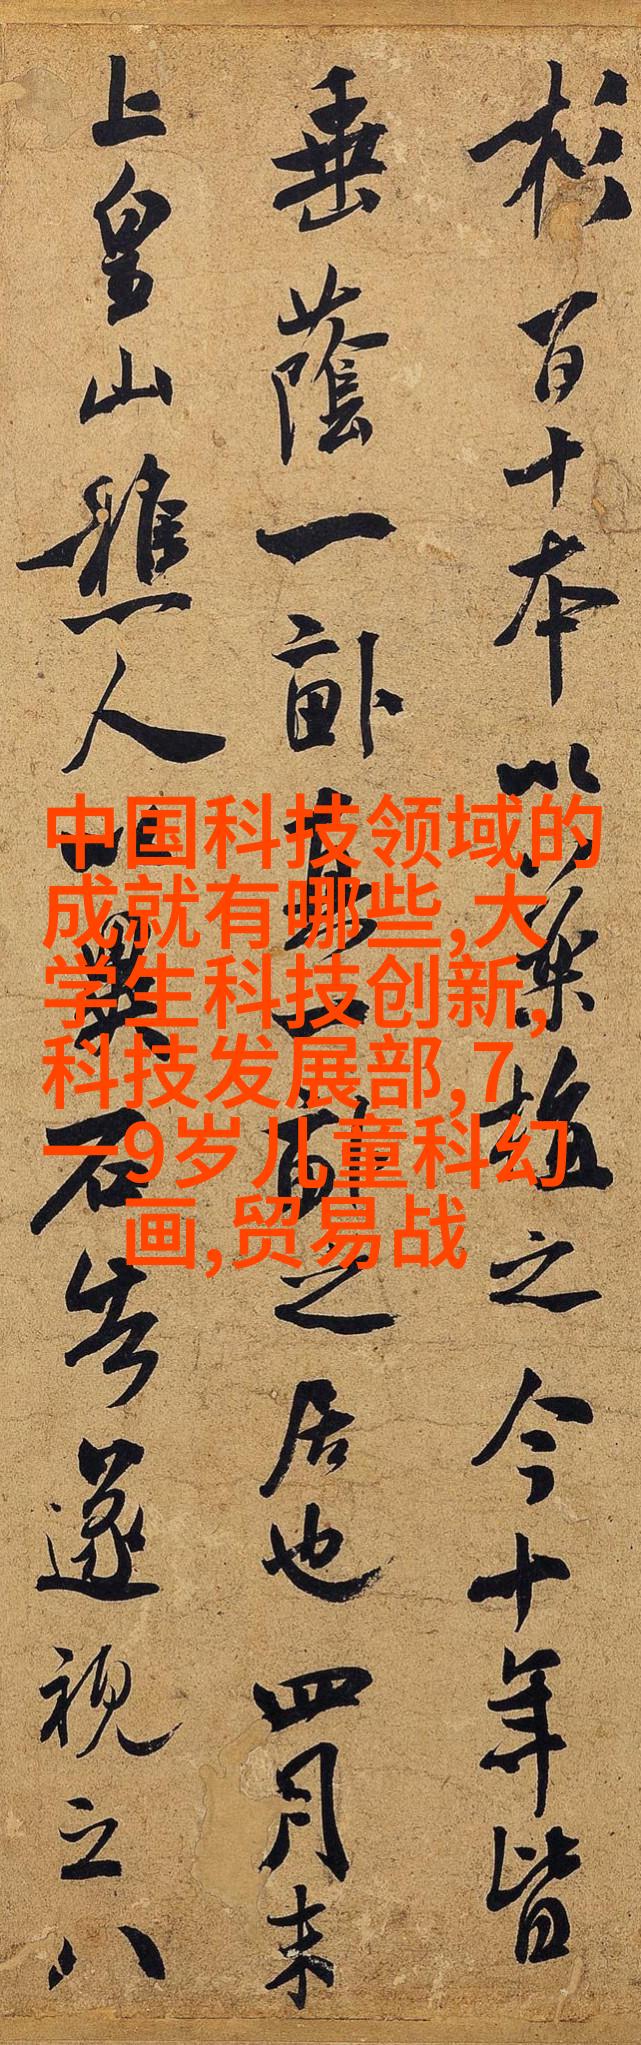 杉百十本以藥植之今十年皆
垂蔭一畝之居也四月末
上皇山樵人以異石告遂視之八
中国科技领域的
成就有哪些,大
学生科技创新,
科技发展部,7
一9岁儿童科幻
画,贸易战